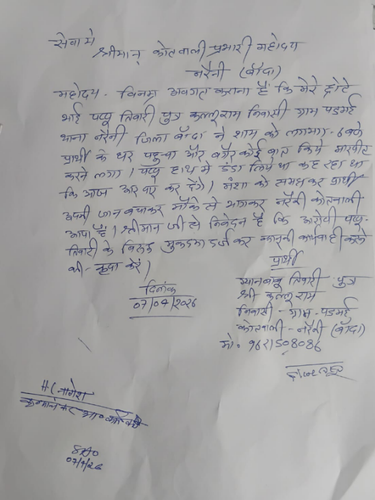 सेवा मे
श्रीमान् कोतवाली प्रभारी महोदय
नरैनी (बाँदा)
महोदय - विनम्र अवगत कराना है कि मेरे छोटे
भाई पप्पू तिवारी पुत्र कल्लूराम निवासी ग्राम पडमई
थाना नरैनी जिला बाँदा ने शाम को लगभग - 6 बजे
प्रार्थी के घर पहुचा और बगैर कोई बात किये मारपीट
करने लगा। पप्पू हाथ मे डंडा लिये था कह रहा था
कि आज कर देंगे। मंशा को समझकर प्रार्थी
अपनी जान बचाकर मौके से भागकर नरैनी कोतवाली
आया है। श्रीमान जी से निवेदन है कि आरोपी पप्पू-
तिवारी के विरुद्ध मुकदमा दर्ज कर कानूनी कार्यवाही करने
की कृपा करें।
प्रार्थी
दिनांक
07/04/2026
तिवारी पुत्र
श्री कल्लूराम
निवासी - ग्राम - पडमई
कोतवाली - नरैनी (बाँदा)
मो. 9621508086
HC नागेश
07/4/26